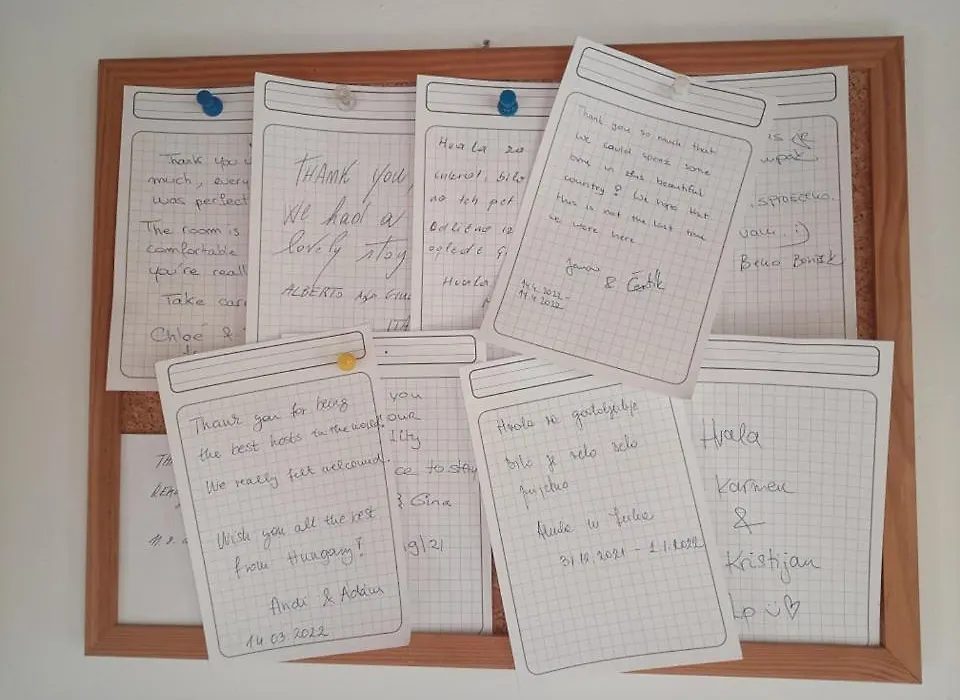 Thank you
much, every
was perfect
The room is
comfortable
you're reall
Take car
Chloé &
THANK YOU,
We had a
lovely stay
ALBERTO
ITA
Hvala za
bilo
Odlične iz
oglede
Hvala
Thank you so much that
we could spend some
time in this beautiful
country! We hope that
this is not the last time
we were here
Janor
& Čertík
14.4.2022 -
17.4.2022
is je
upak
vam :)
Thank you for being
the best hosts in the world!
We really felt welcomed.
Wish you all the best
from Hungary!
Andi & Ádám
14.03.2022
TH
you
our
lity
ce to stay
& Gina
9/21
Hvala za gostoljubje
bilo je zelo zelo
fujetno
31.12.2021 - 1.1.2022
Hvala
Karmen
&
Kristijan
Lp